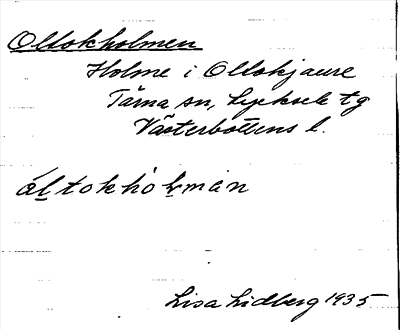 Oltokholmen
Holme i Oltokjaure
Tärna sn, Lycksele tg
Västerbottens l.
áltokhòlmán
Lisa Lidberg 1935